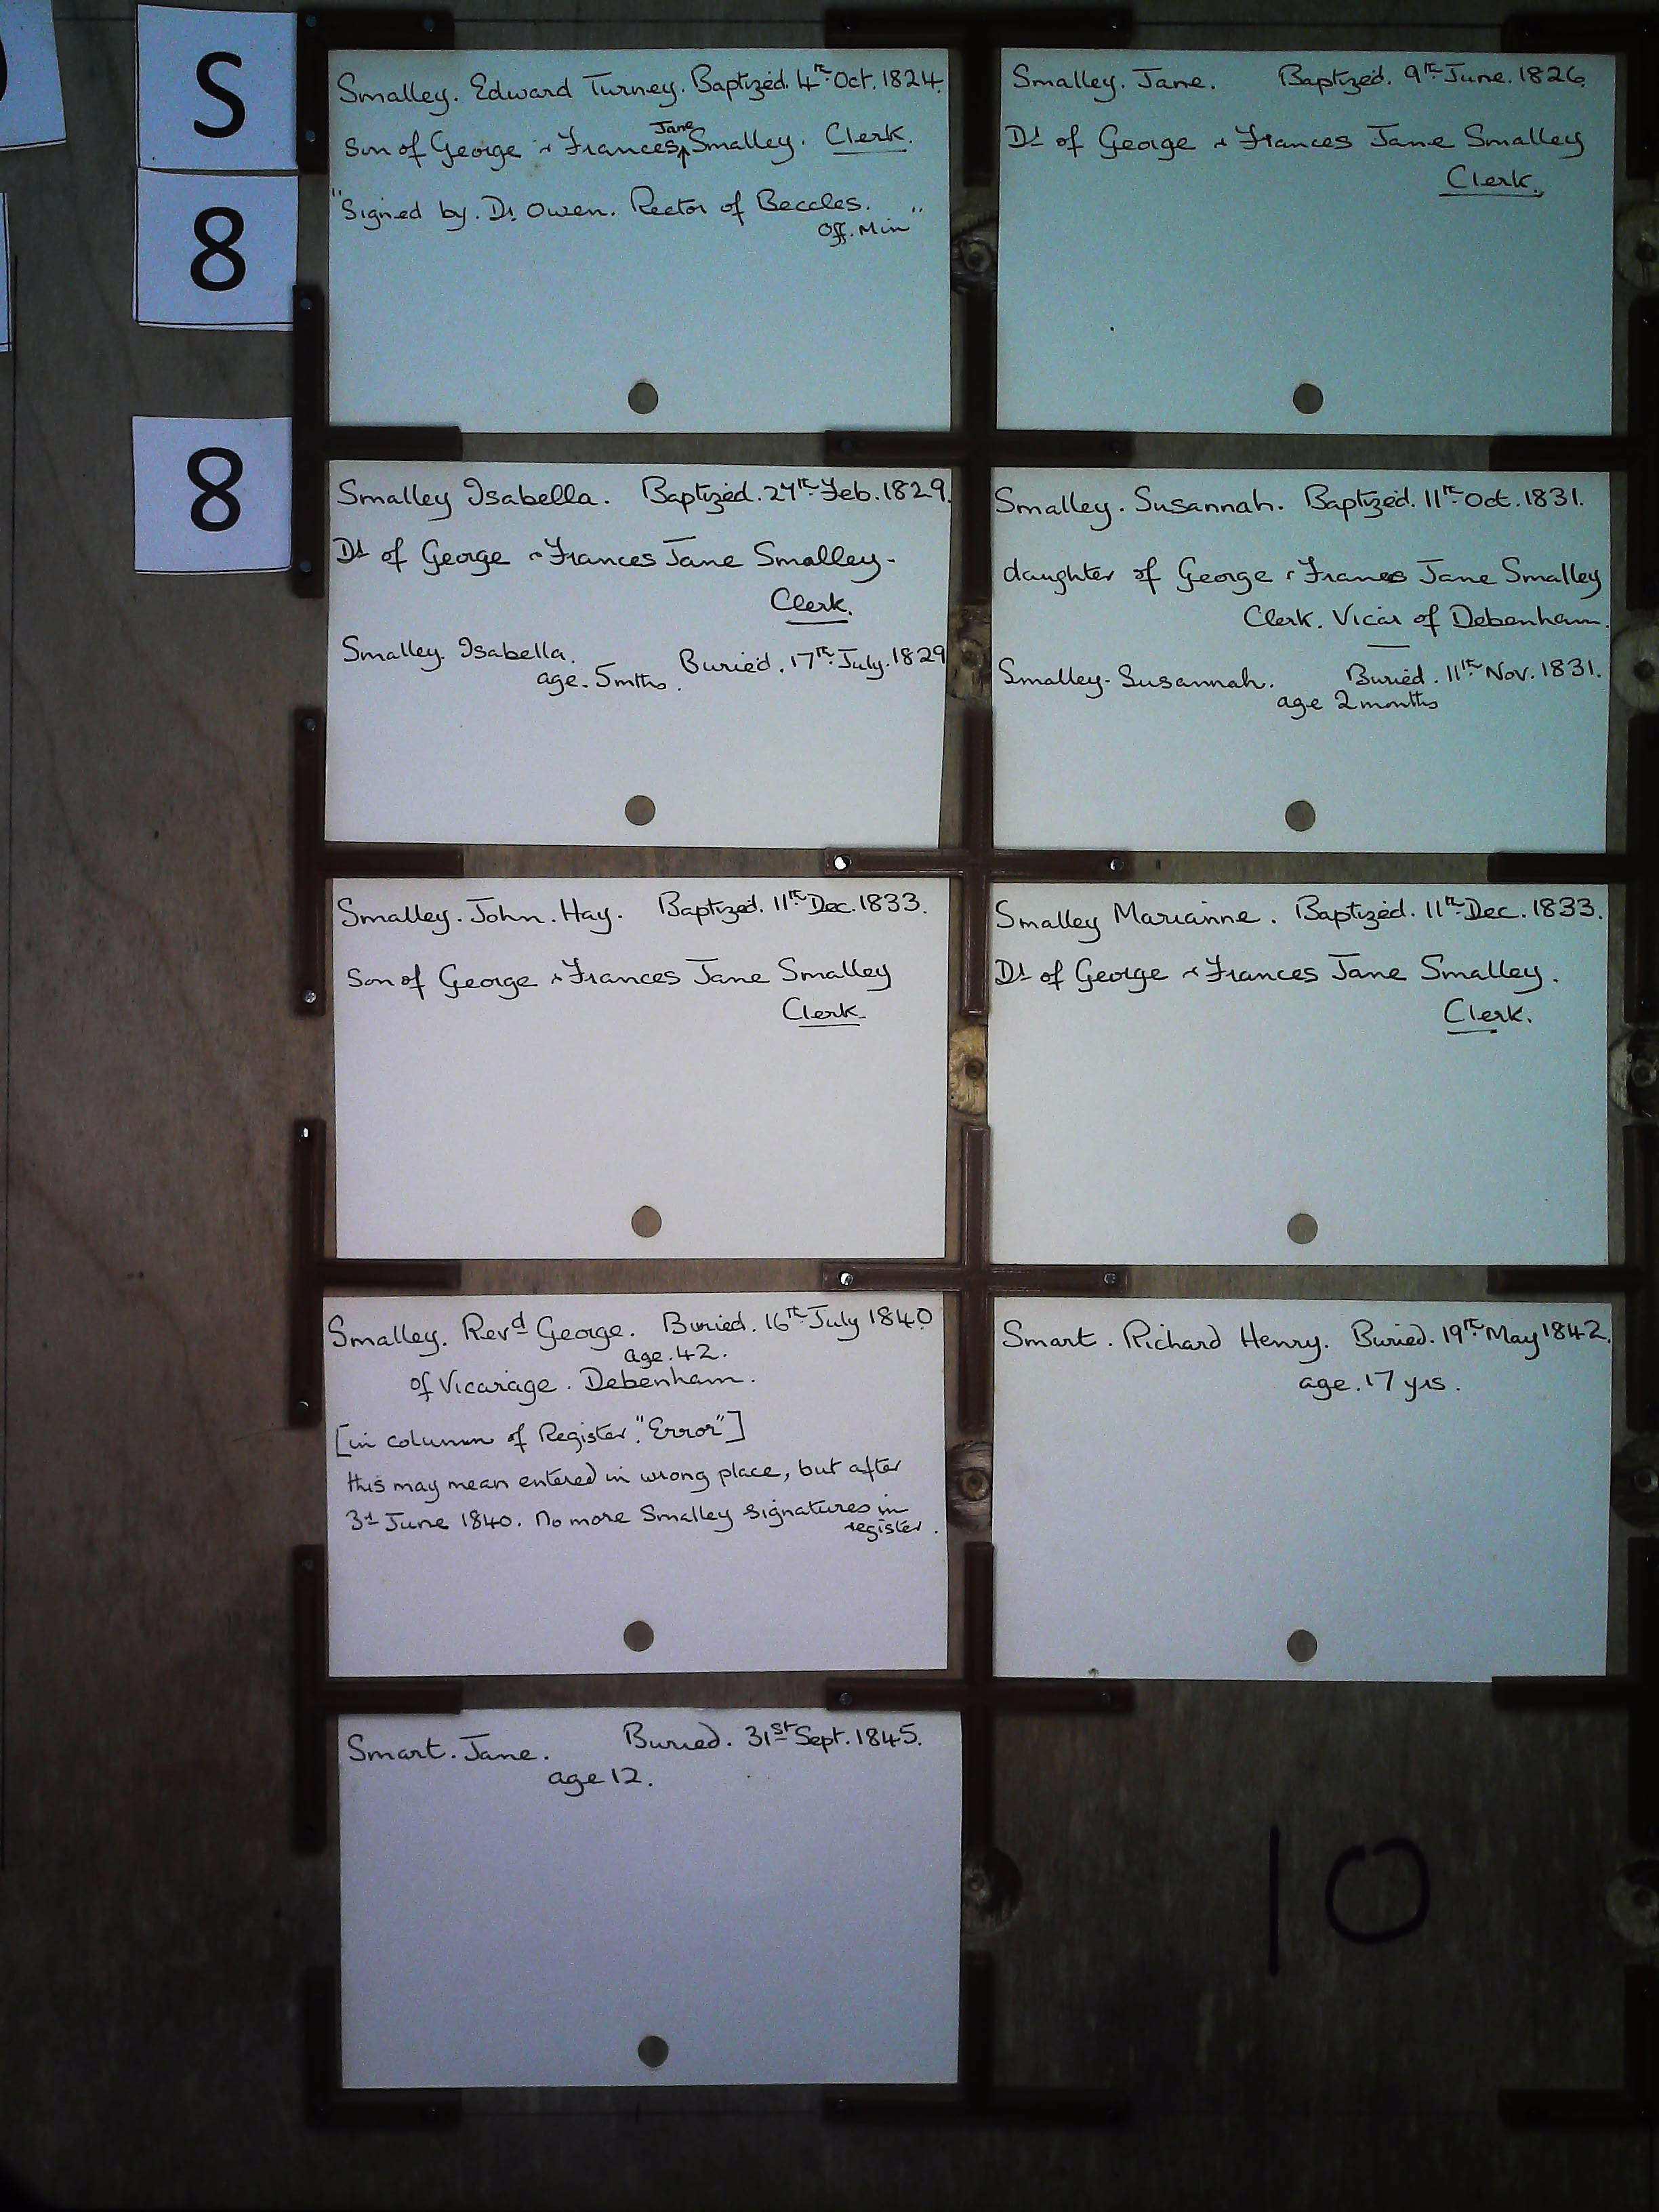 S
8
8
Smalley. Edward Turney. Baptized. 4th Oct. 1824.
Jane
son of George & Frances Smalley. Clerk.
"Signed by. Dr. Owen. Rector of Beccles.
Off. Min"
Smalley. Jane. Baptized. 9th June. 1826.
Dt of George & Frances Jane Smalley
Clerk.
Smalley Isabella. Baptized. 27th Feb. 1829.
Dt of George & Frances Jane Smalley-
Clerk.
Smalley. Isabella. Buried. 17th July. 1829
age. 5mths.
Smalley. Susannah. Baptized. 11th Oct. 1831.
daughter of George & Frances Jane Smalley
Clerk. Vicar of Debenham.
Smalley- Susannah. Buried. 11th Nov. 1831.
age 2 months
Smalley. John. Hay. Baptized. 11th Dec. 1833.
Son of George & Frances Jane Smalley
Clerk.
Smalley Marianne. Baptized. 11th Dec. 1833.
Dt of George & Frances Jane Smalley.
Clerk.
Smalley. Revd George. Buried. 16th July 1840
age. 42.
of Vicarage. Debenham.
[in column of Register. "Error"]
this may mean entered in wrong place, but after
3rd June 1840. No more Smalley signatures in
register.
Smart. Richard Henry. Buried. 19th May 1842.
age. 17 yrs.
Smart. Jane. Buried. 31st Sept. 1845.
age 12.
10